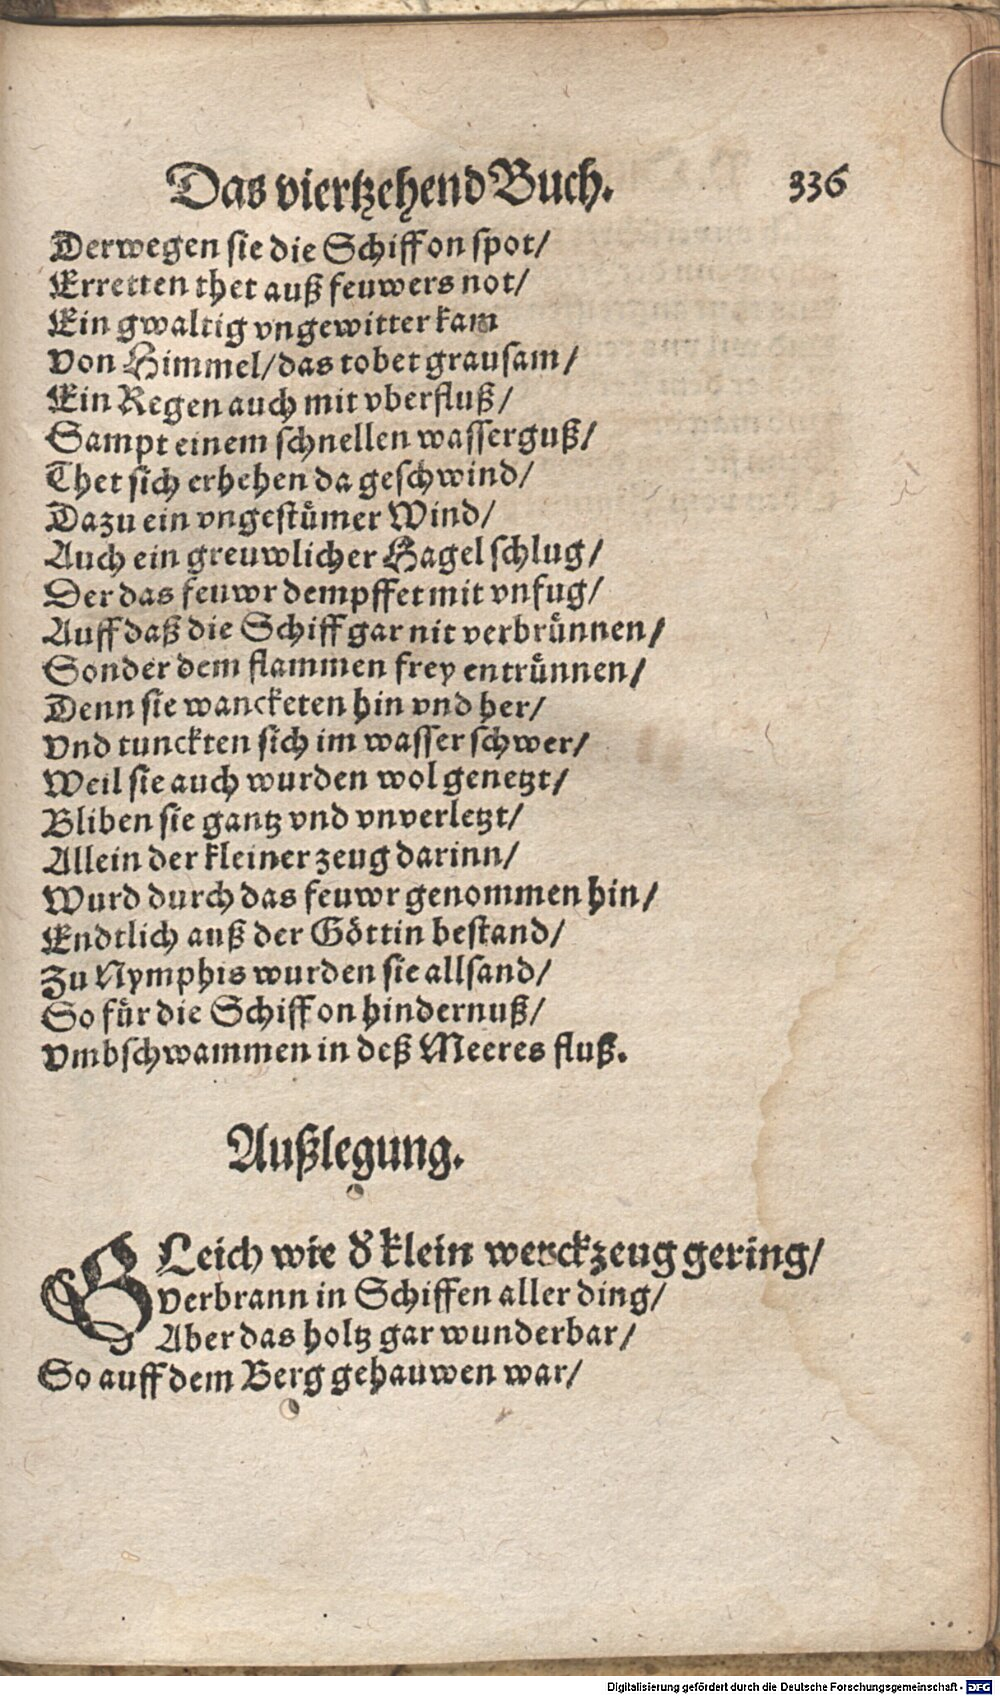 Das viertzehend Buch. 336
Derwegen sie die Schiff on spot/
Erretten thet auß feuwers not/
Ein gwaltig vngewitter kam
Von Himmel/das tobet grausam/
Ein Regen auch mit vberfluß/
Sampt einem schnellen wasserguß/
Thet sich erhehen da geschwind/
Dazu ein vngestümer Wind/
Auch ein greuwlicher Hagel schlug/
Der das feuwr dempffet mit vnfug/
Auff daß die Schiff gar nit verbrünnen/
Sonder dem flammen frey entrünnen/
Denn sie wancketen hin vnd her/
Vnd tunckten sich im wasser schwer/
Weil sie auch wurden wol genetzt/
Bliben sie gantz vnd vnverletzt/
Allein der kleiner zeug darinn/
Wurd durch das feuwr genommen hin/
Endtlich auß der Göttin bestand/
Zu Nymphis wurden sie allsand/
So für die Schiff on hindernuß/
Vmbschwammen in deß Meeres fluß.
Außlegung.
GLeich wie d' klein werckzeug gering/
Verbrann in Schiffen aller ding/
Aber das holtz gar wunderbar/
So auff dem Berg gehauwen war/
Digitalisierung gefördert durch die Deutsche Forschungsgemeinschaft - DFG